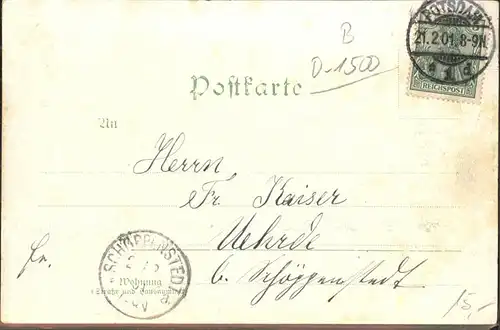 B
D-1500
POTSDAM
21.2.01.8-9N.
REICHSPOST
Postkarte
An
Herrn
Fr. Kaiser
Uehrde
b. Schöppenstedt
Fr.
SCHÖPPENSTEDT
Wohnung
(Straße und Hausnummer)
15,-